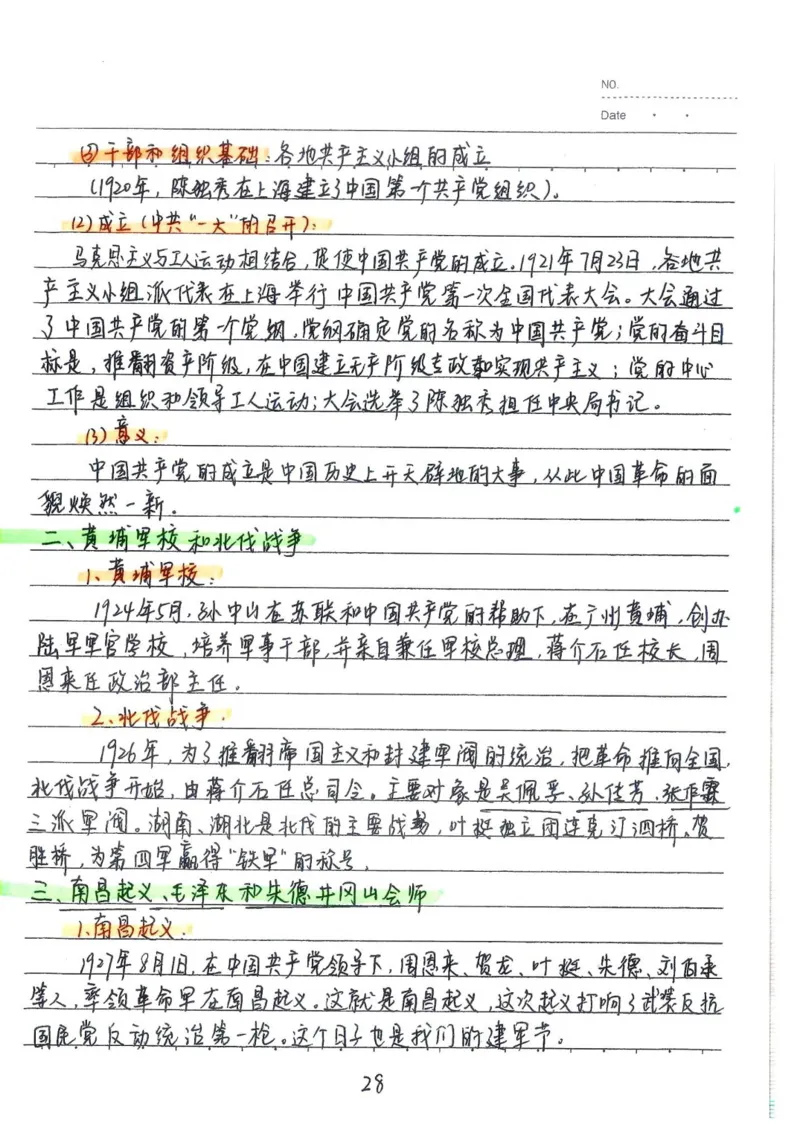 NO.
Date
④干部和组织基础:各地共产主义小组的成立
(1920年,陈独秀在上海建立了中国第一个共产党组织)。
(2)成立(中共“一大”的召开):
马克思主义与工人运动相结合,促使中国共产党的成立。1921年7月23日,各地共
产主义小组派代表在上海举行中国共产党第一次全国代表大会。大会通过
了中国共产党的第一个党纲,党纲确定党的名称为中国共产党;党的奋斗目
标是,推翻资产阶级,在中国建立无产阶级专政和实现共产主义;党的中心
工作是组织和领导工人运动;大会选举了陈独秀担任中央局书记。
(3)意义:
中国共产党的成立是中国历史上开天辟地的大事,从此中国革命的面
貌焕然一新。
二、黄埔军校和北伐战争
1、黄埔军校:
1924年5月,孙中山在苏联和中国共产党的帮助下,在广州黄埔,创办
陆军军官学校,培养军事干部,并亲自兼任军校总理,蒋介石任校长,周
恩来任政治部主任。
2、北伐战争:
1926年,为了推翻帝国主义和封建军阀的统治,把革命推向全国,
北伐战争开始,由蒋介石任总司令。主要对象是吴佩孚、孙传芳、张作霖
三派军阀。湖南、湖北是北伐的主要战场,叶挺独立团连克汀泗桥、贺
胜桥,为第四军赢得“铁军”的称号。
三、南昌起义、毛泽东和朱德井冈山会师
1、南昌起义:
1927年8月1日,在中国共产党领导下,周恩来、贺龙、叶挺、朱德、刘伯承
等人,率领革命军在南昌起义。这就是南昌起义,这次起义打响了武装反抗
国民党反动统治第一枪。这个日子也是我们的建军节。
28